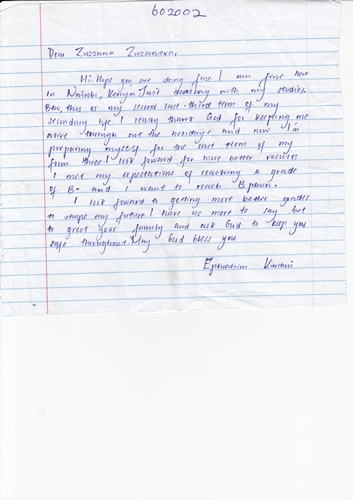 602002
Dear Zuzzana Zuzanova,
Hi. Hope you are doing fine. I am fine here
in Nairobi, Kenya Just dealing with my studies.
Btw, this is my second last-third term of my
secondary life. I really thank God for keeping me
alive through out the holidays and now I'm
preparing myself for the last term of my
form three. I look forward for more better results
I met my expectations of reaching a grade
of B- and I want to reach B plain.
I look forward to getting more better grades
to shape my future. I have no more to say but
to greet your family and ask God to keep you
safe throughout. May God bless you
Ephraim